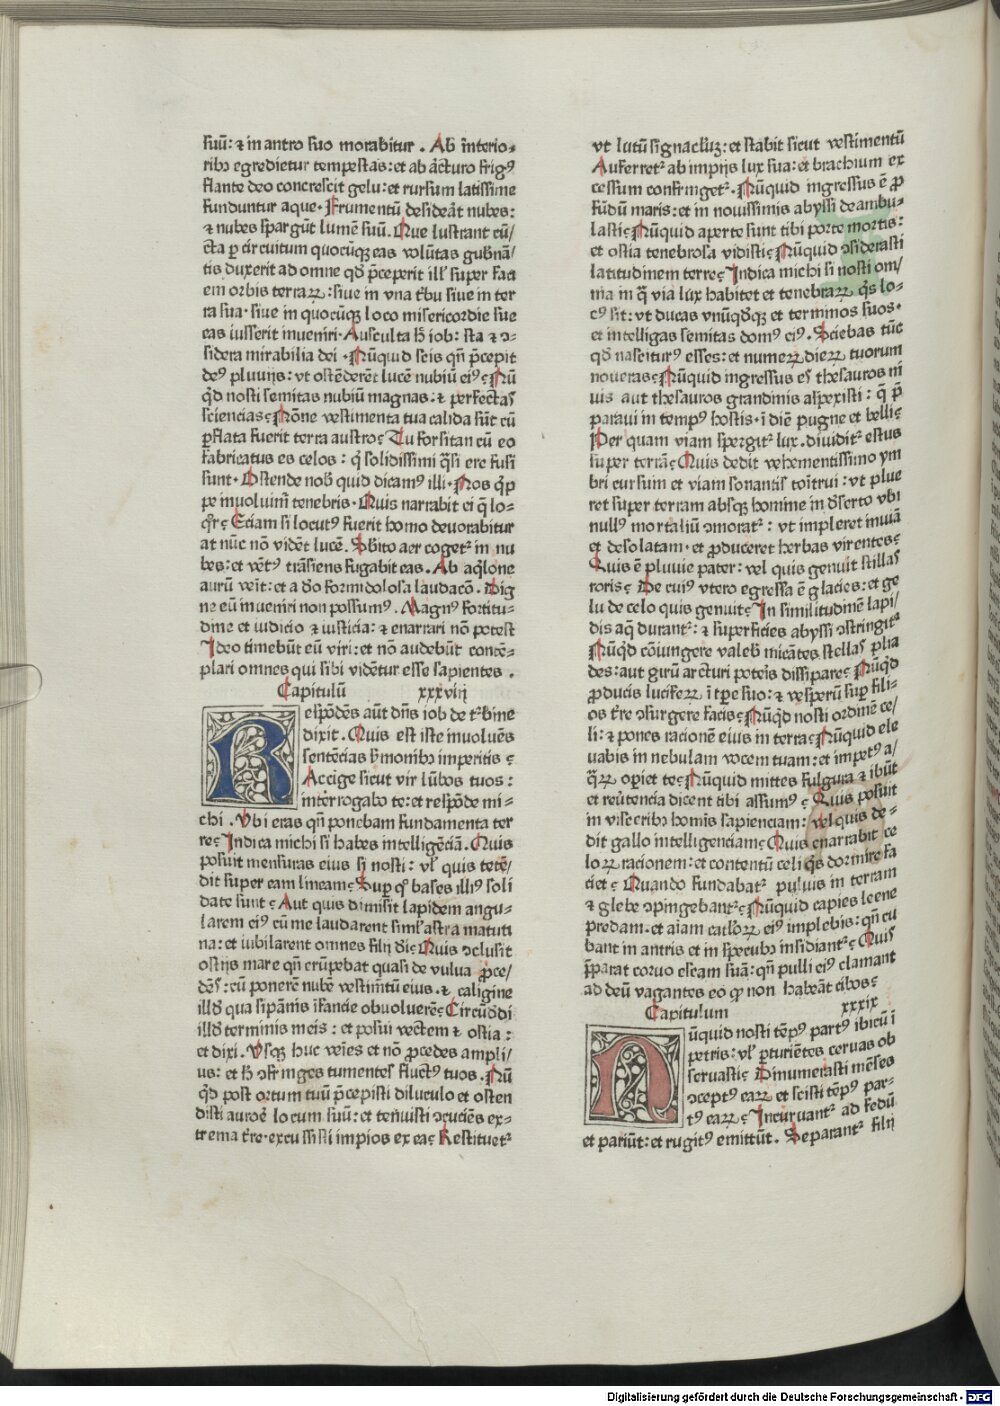 suū: ⁊ in antro suo morabitur. Ab īnterio⸗
ribꝫ egredietur tempestas: et ab ārcturo frigꝰ
flante deo concrescit gelu: et rursum latissime
funduntur aque. Frumentū desiderāt nubes:
⁊ nubes spargūt lumē suū. Que lustrant cū/
cta ꝑ circuitum quocūqꝫ eas volūtas gubnā/
tis duxerit ad omne qd̄ p̄ceperit ill̓ super faci
em orbis terraꝝ: siue in vna tribu siue in ter
ra sua. siue in quocūqꝫ loco misericordie sue
eas iusserit inueniri. Ausculta h̄ iob: sta ⁊ ɔ⸗
sidera mirabilia dei. Nūquid scis qn̄ p̄cepit
deꝰ pluuijs: vt ostēderēt lucē nubiū eiꝰ? Nū
qd nosti semitas nubiū magnas: ⁊ perfectas
sciencias? Nōne vestimenta tua calida sūt cū
ꝑflata fuerit terra austro? Tu forsitan cū eo
fabricatus es celos: q̄ solidissimi q̄si ere fusi
sunt. Ostende nob̄ quid dicamꝰ illi. Nos q̄ꝑ
pe inuoluim̄ tenebris. Quis narrabit ei q̄ lo⸗
q̄r? Eciam si locutꝰ fuerit homo deuorabitur
at nūc nō vidēt lucē. Sbito aer coget᷑ in nu
bes: et vētꝰ trāsiens fugabit eas. Ab aq̄lone
aurū veīt: et a dō formidolosa laudacō. Dig
ne eū inueniri non possumꝰ. Magnꝰ fortitu⸗
dine et iudicio ⁊ iusticia: ⁊ enarrari nō potest
Ideo timebūt eū viri: et nō audebūt contē⸗
plari omnes qui sibi vidētur esse sapientes.
Capitulū xxxviij
Respōdēs aūt dn̄s iob de t᷑bine
dixit. Quis est iste inuoluēs
sentēcias sermonibꝫ imperitis?
Accige sicut vir lūbos tuos:
interrogabo te: et respōde mi⸗
chi. Vbi eras qn̄ ponebam fundamenta ter
re? Indica michi si habes intelligēciā. Quis
posuit mensuras eius si nosti: vl̓ quis tetē/
dit super eam lineam? Sup qͦ bases illiꝰ soli
date sunt? Aut quis dimisit lapidem angu⸗
larem eiꝰ cū me laudarent siml̓ astra matuti
na: et iubilarent omnes filij di? Quis ɔclusit
ostijs mare qn̄ erūpebat quasi de vulua ꝓce/
dēs: cū ponerē nubē vestimētū eius. ⁊ caligine
illd̓ qua si pānis īfancie obuoluerē? Circūdedi
illd̓ terminis meis: et posui vectem ⁊ ostia:
et dixi. Vsqꝫ huc veies et nō ꝓcedes ampli/
us: et h̄ ɔfringes tumentes fluctꝰ tuos. Nū
qd̄ post ortum tuū p̄cepisti diluculo et osten
disti aurore locum suū: et tenuisti ɔcuciēs ex⸗
trema tr̄re. excussisti impios ex ea? Restituet᷑
vt lutū signaclꝫ: et stabit sicut vestimentū
Auferret᷑ ab impijs lux sua: et brachium ex
celsum confringet᷑. Nūquid ingressus ē ꝓ
fūdū maris: et in nouissimis abyssi deambu⸗
lasti? Nūquid aperte sunt tibi porte mortis:
et ostia tenebrosa vidisti? Nūquid ɔsiderasti
latitudinem terre? Indica michi si nosti om/
nia in q̄ via lux habitet et tenebraꝝ q̄s lo⸗
cꝰ sit: vt ducas vnūqd̓qꝫ et terminos suos.
et intelligas semitas domꝰ eiꝰ. Sciebas tūc
qd̄ nasciturꝰ esses: et numeꝝ dieꝝ tuorum
noueras? Nūquid ingressus es thesauros ni
uis aut thesauros grandinis aspexisti: q̄ p̄
paraui in tempꝰ hostis. ī diē pugne et belli?
Per quam viam spergit᷑ lux. diuidit᷑ estus
super terrā? Quis dedit vehementissimo ym
bri cursum et viam sonantis toītrui: vt plue
ret super terram absqꝫ homine in dserto vbi
nullꝰ mortaliū ɔmorat᷑: vt impleret inuiā
et desolatam. et ꝓduceret herbas virentes?
Quis ē pluuie pater: vel quis genuit stillas
roris? De cuiꝰ vtero egressa ē glacies: et ge
lu de celo quis genuit? In similitudinē lapi/
dis aq̄ durant᷑: ⁊ superficies abyssi ɔstringit᷑
Nūqd ɔiungere valeb micātes stellas plia
des: aut girū arcturi poteris dissipare? Nūqd
ꝓducis luciferꝝ ī tꝑe suo: ⁊ vesperū suꝑ fili⸗
os tr̄re ɔsurgere facis? Nūqd nosti ordinē ce/
li: ⁊ pones racionē eius in terra? Nūquid ele
uabis in nebulam vocem tuam: et impetꝰ a/
q̄ꝝ oꝑiet te? Nūquid mittes fulgura ⁊ ibūt
et reūtencia dicent tibi assumꝰ? Quis posuit
in visceribꝫ homīs sapienciam: vel quis de⸗
dit gallo intelligenciam? Quis enarrabit ce
loꝝ racionem: et contentū celi qͥs dormire fa
ciet? Quando fundabat᷑ puluis in terram
⁊ glebe ɔpingebant᷑? Nūquid capies leene
predam. et aīam catl̓oꝝ eiꝰ implebis: qn̄ cu
bant in antris et in specubꝫ insidiant᷑? Quis
p̄parat coruo escam suā: qn̄ pulli eiꝰ clamant
ad deū vagantes eo ꝙ non habeāt cibos?
Capitulum xxxix
Nūquid nosti tēpꝰ partꝰ ibicū ī
petris: vl̓ ꝑturiētes ceruas ob
seruasti? Dinumerasti mēses
ɔceptꝰ eaꝝ et scisti tēpꝰ par⸗
tꝰ eaꝝ? Incuruant᷑ ad fedū
et pariūt: et rugitꝰ emittūt. Separant᷑ filij
Digitalisierung gefördert durch die Deutsche Forschungsgemeinschaft - DFG